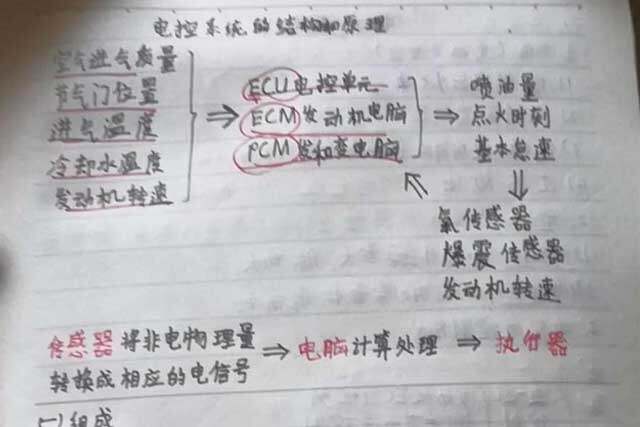 电控系统的结构和原理
空气进气质量
节气门位置
进气温度
冷却水温度
发动机转速
⇒
ECU电控单元
ECM发动机电脑
PCM发和变电脑
⇒
喷油量
点火时刻
基本怠速
⇓
氧传感器
爆震传感器
发动机转速
传感器将非电物理量 ⇒ 电脑计算处理 ⇒ 执行器
转换成相应的电信号
(一)组成